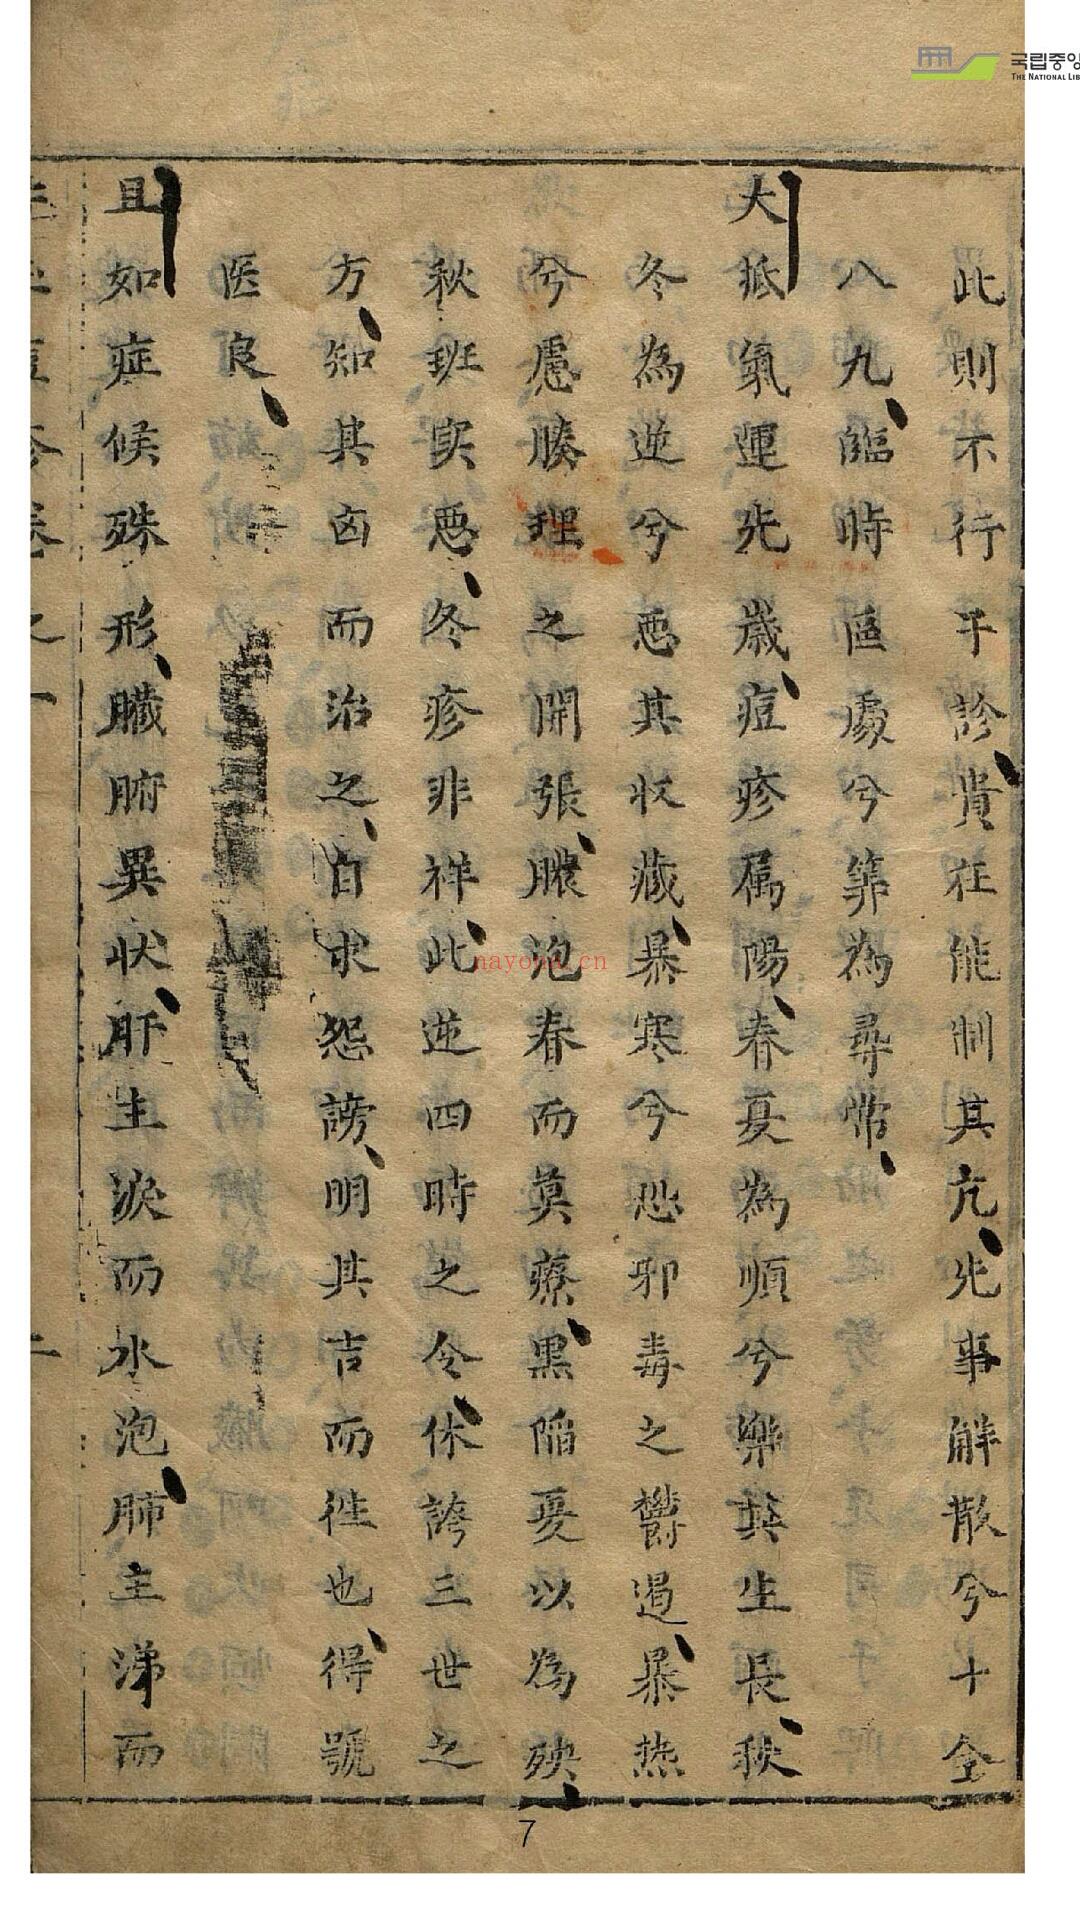 国립중앙
THE NATIONAL LIB
此則不行乎診貴在能制其亢先事解散兮十全
八九臨時區處兮第為尋常
大抵氣運先歲痘疹属陽春夏為順兮樂其生長秋
冬為逆兮惡其收藏暴寒兮恐邪毒之欝遏暴热
兮慮腠理之開張膿泡春而莫療黑陷夏以為殃
秋班实惡冬疹非祥此逆四時之令休誇三世之
方知其凶而治之自求怨謗明其吉而徃也得號
医良
且如症候殊形臟腑異状肝主淚而水泡肺主涕而
痘疹卷之一
二
nayona.cn
7